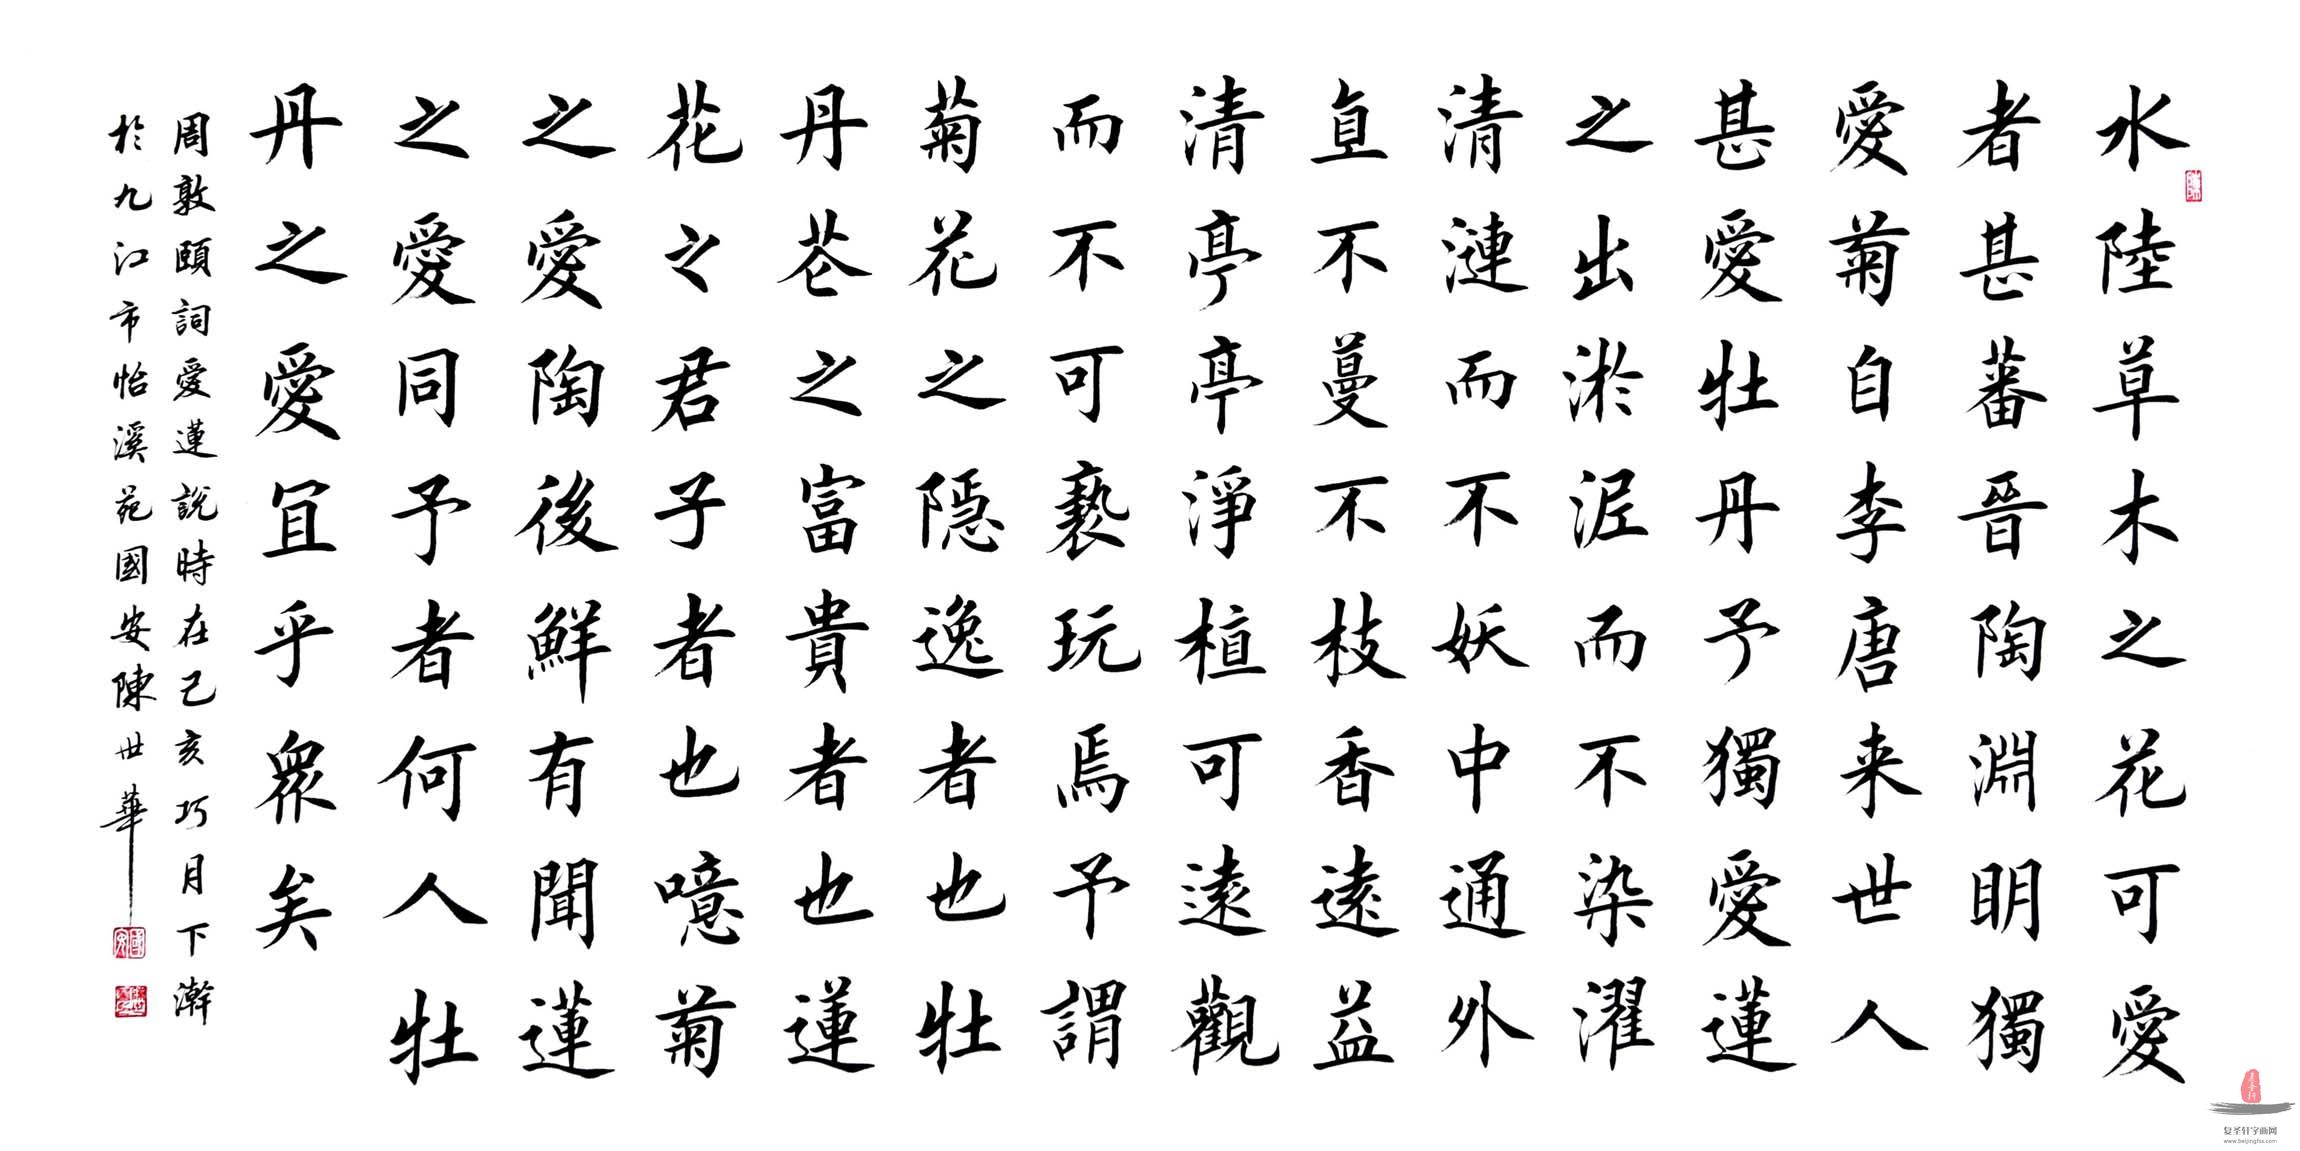 水陸草木之花可愛
者甚蕃晉陶淵明獨
愛菊自李唐来世人
甚愛牡丹予獨愛蓮
之出淤泥而不染濯
清漣而不妖中通外
直不蔓不枝香遠益
清亭亭淨植可遠觀
而不可褻玩焉予謂
菊花之隱逸者也牡
丹花之富貴者也蓮
花之君子者也噫菊
之愛陶後鮮有聞蓮
之愛同予者何人牡
丹之愛宜乎眾矣
周敦頤詞愛蓮說時在己亥巧月下澣
於九江市怡溪苑國安陳世華
复圣轩字画网
www.beijingfsx.com